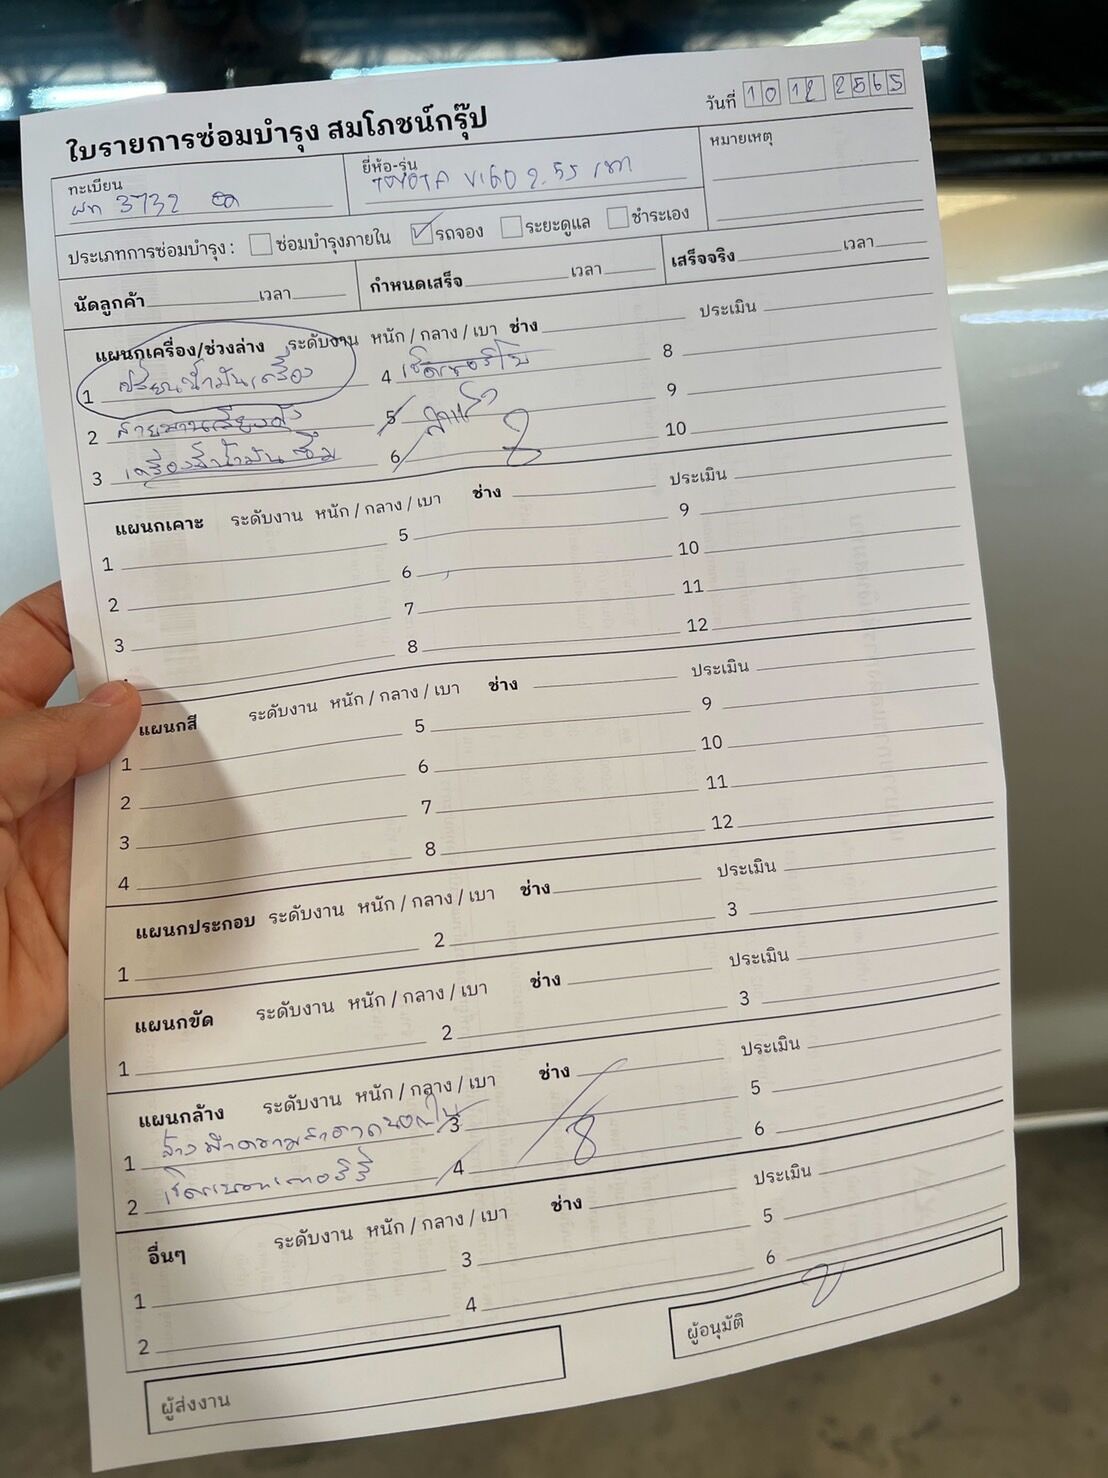 ใบรายการซ่อมบำรุง สมโภชน์กรุ๊ป
วันที่ 10 12 2565
ทะเบียน
3732
ยี่ห้อ-รุ่น
TOYOTA VIGO 2.5J เทา
หมายเหตุ
ประเภทการซ่อมบำรุง : ซ่อมบำรุงภายใน รถจอง ระยะดูแล ชำระเอง
นัดลูกค้า เวลา กำหนดเสร็จ เวลา เสร็จจริง เวลา
แผนกเครื่อง/ช่วงล่าง ระดับงาน หนัก / กลาง / เบา ช่าง ประเมิน
1 เปลี่ยนน้ำมันเครื่อง 4 เช็คเทอร์โบ 8
2 สายพานเสียงดัง 5 9
3 เครื่องมีน้ำมันซึม 6 10
แผนกเคาะ ระดับงาน หนัก / กลาง / เบา ช่าง ประเมิน
1 5 9
2 6 10
3 7 11
8 12
แผนกสี ระดับงาน หนัก / กลาง / เบา ช่าง ประเมิน
1 5 9
2 6 10
3 7 11
4 8 12
แผนกประกอบ ระดับงาน หนัก / กลาง / เบา ช่าง ประเมิน
1 2 3
แผนกขัด ระดับงาน หนัก / กลาง / เบา ช่าง ประเมิน
1 2 3
แผนกล้าง ระดับงาน หนัก / กลาง / เบา ช่าง ประเมิน
1 ล้างทำความสะอาดนอกใน 3 5
2 เช็คแบตเตอรี่ 4 6
อื่นๆ ระดับงาน หนัก / กลาง / เบา ช่าง ประเมิน
1 3 5
2 4 6
ผู้ส่งงาน
ผู้อนุมัติ